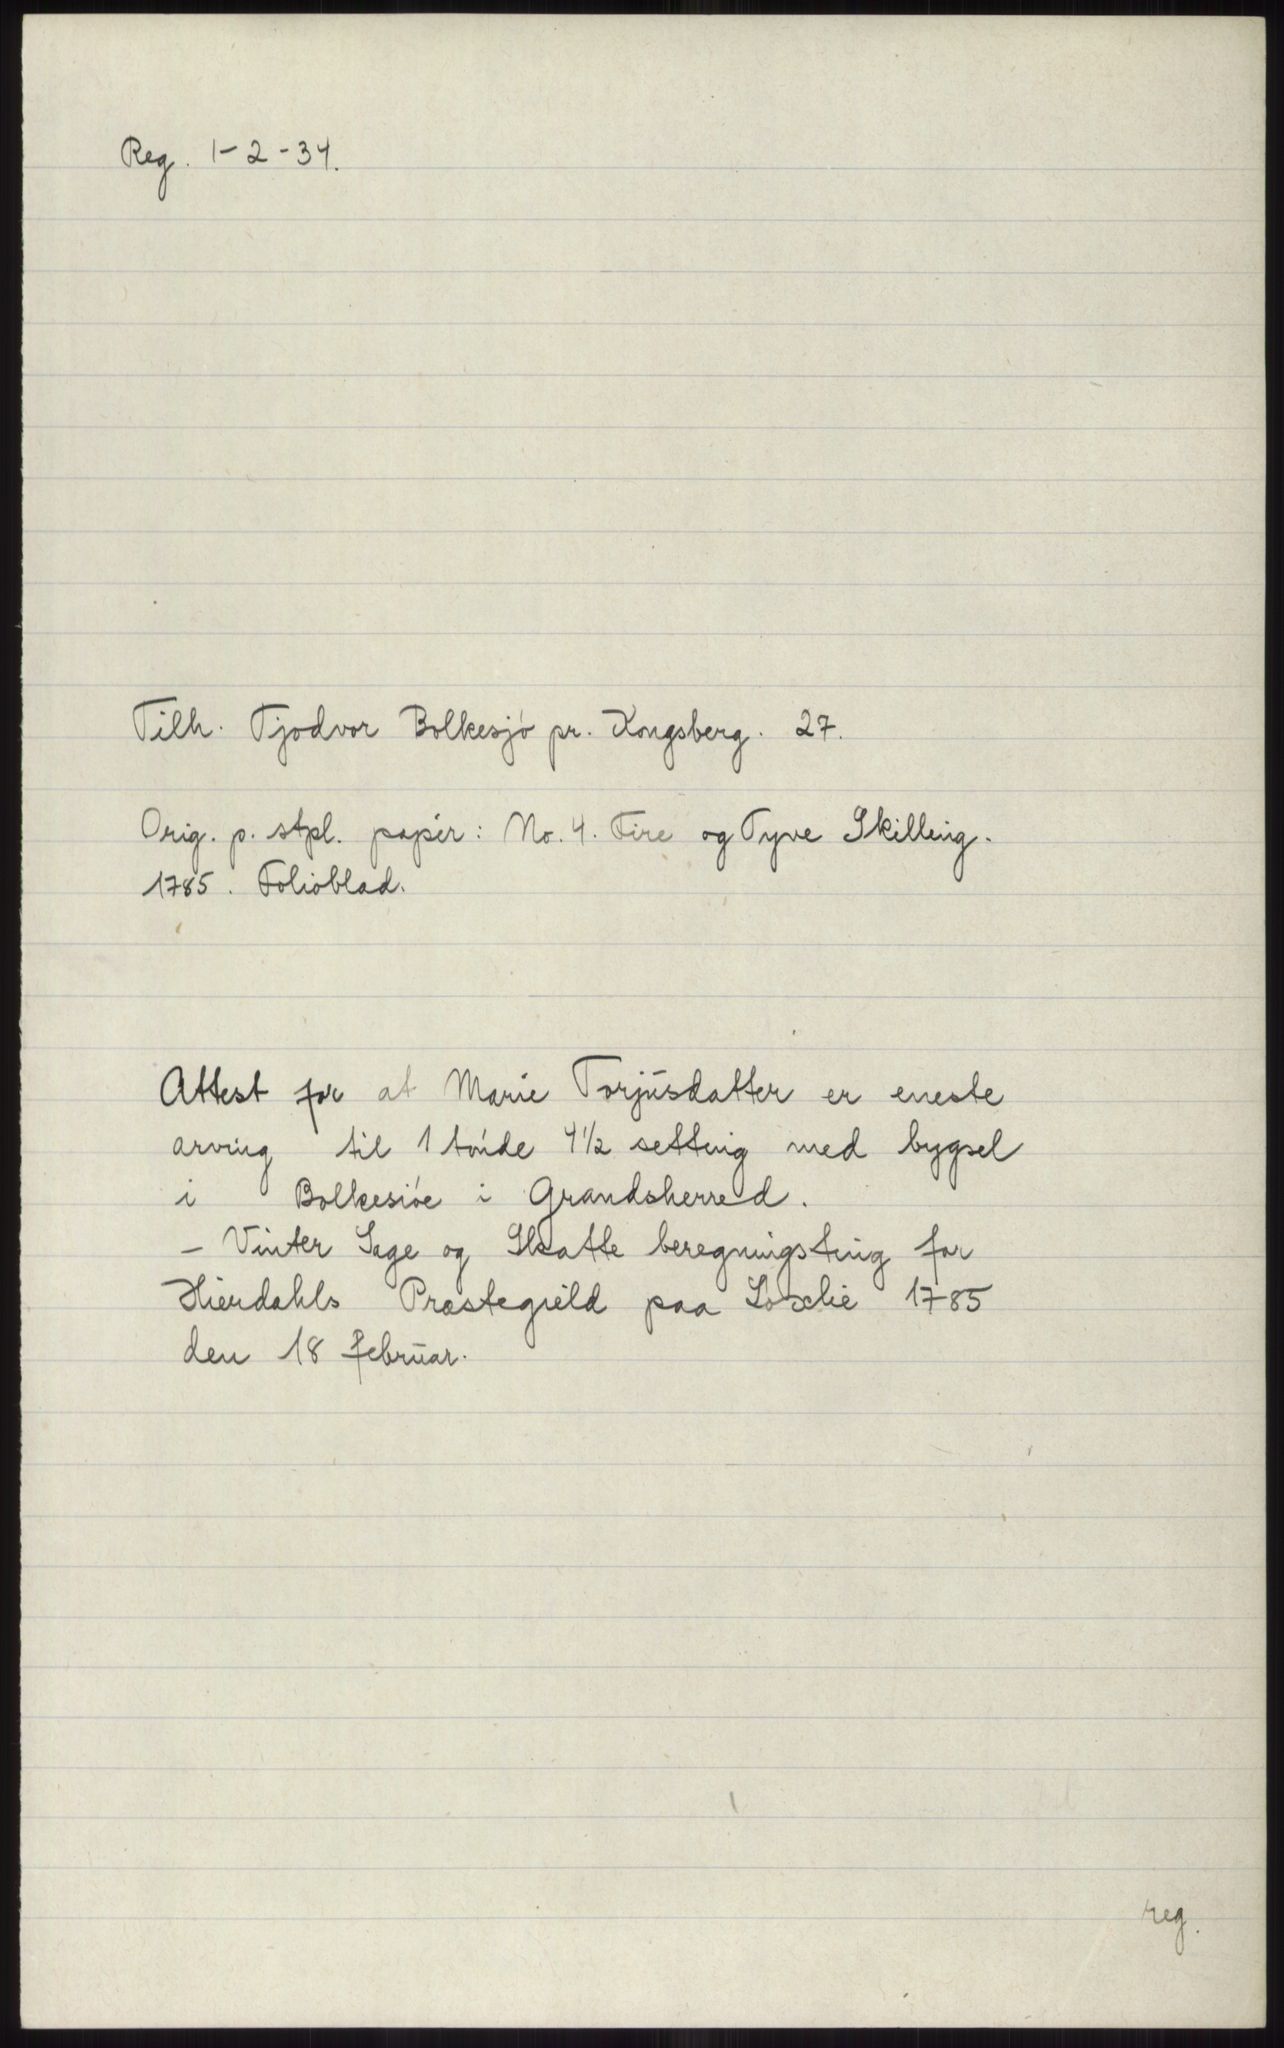 Reg. 1-2-34.
Tilh. Tjodvor Bolkesjó pr. Kongsberg. 27.
Orig. p. stpl. papér: No. 4. Fire og Tyve Skilling.
1785. Folioblad.
Attest for at Marie Torjüsdatter er eneste
arving til 1 tónde 4½ setting med bygsel
i Bolkesióe i Grandsherred.
- Vinter Sage og Skatte beregningsting for
Hierdahls Præstegield paa 1785
den 18 februar.
reg.